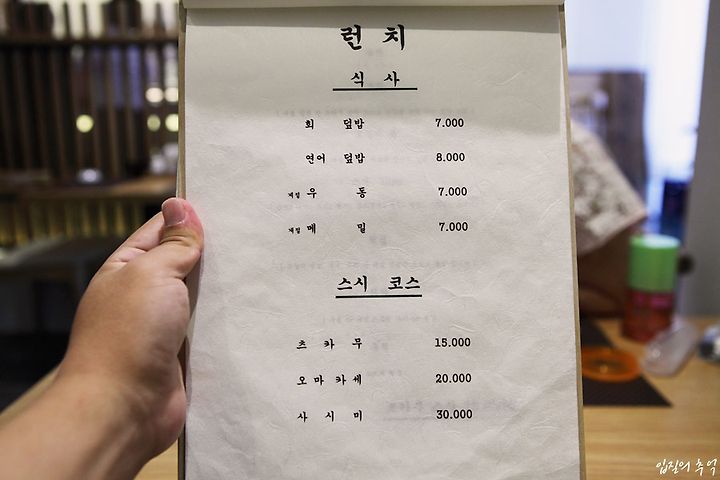 런 치
식 사
회 덮밥 7.000
연어 덮밥 8.000
계절 우 동 7.000
계절 메 밀 7.000
스시 코스
츠 카 무 15.000
오 마 카 세 20.000
사 시 미 30.000
입질의 추억